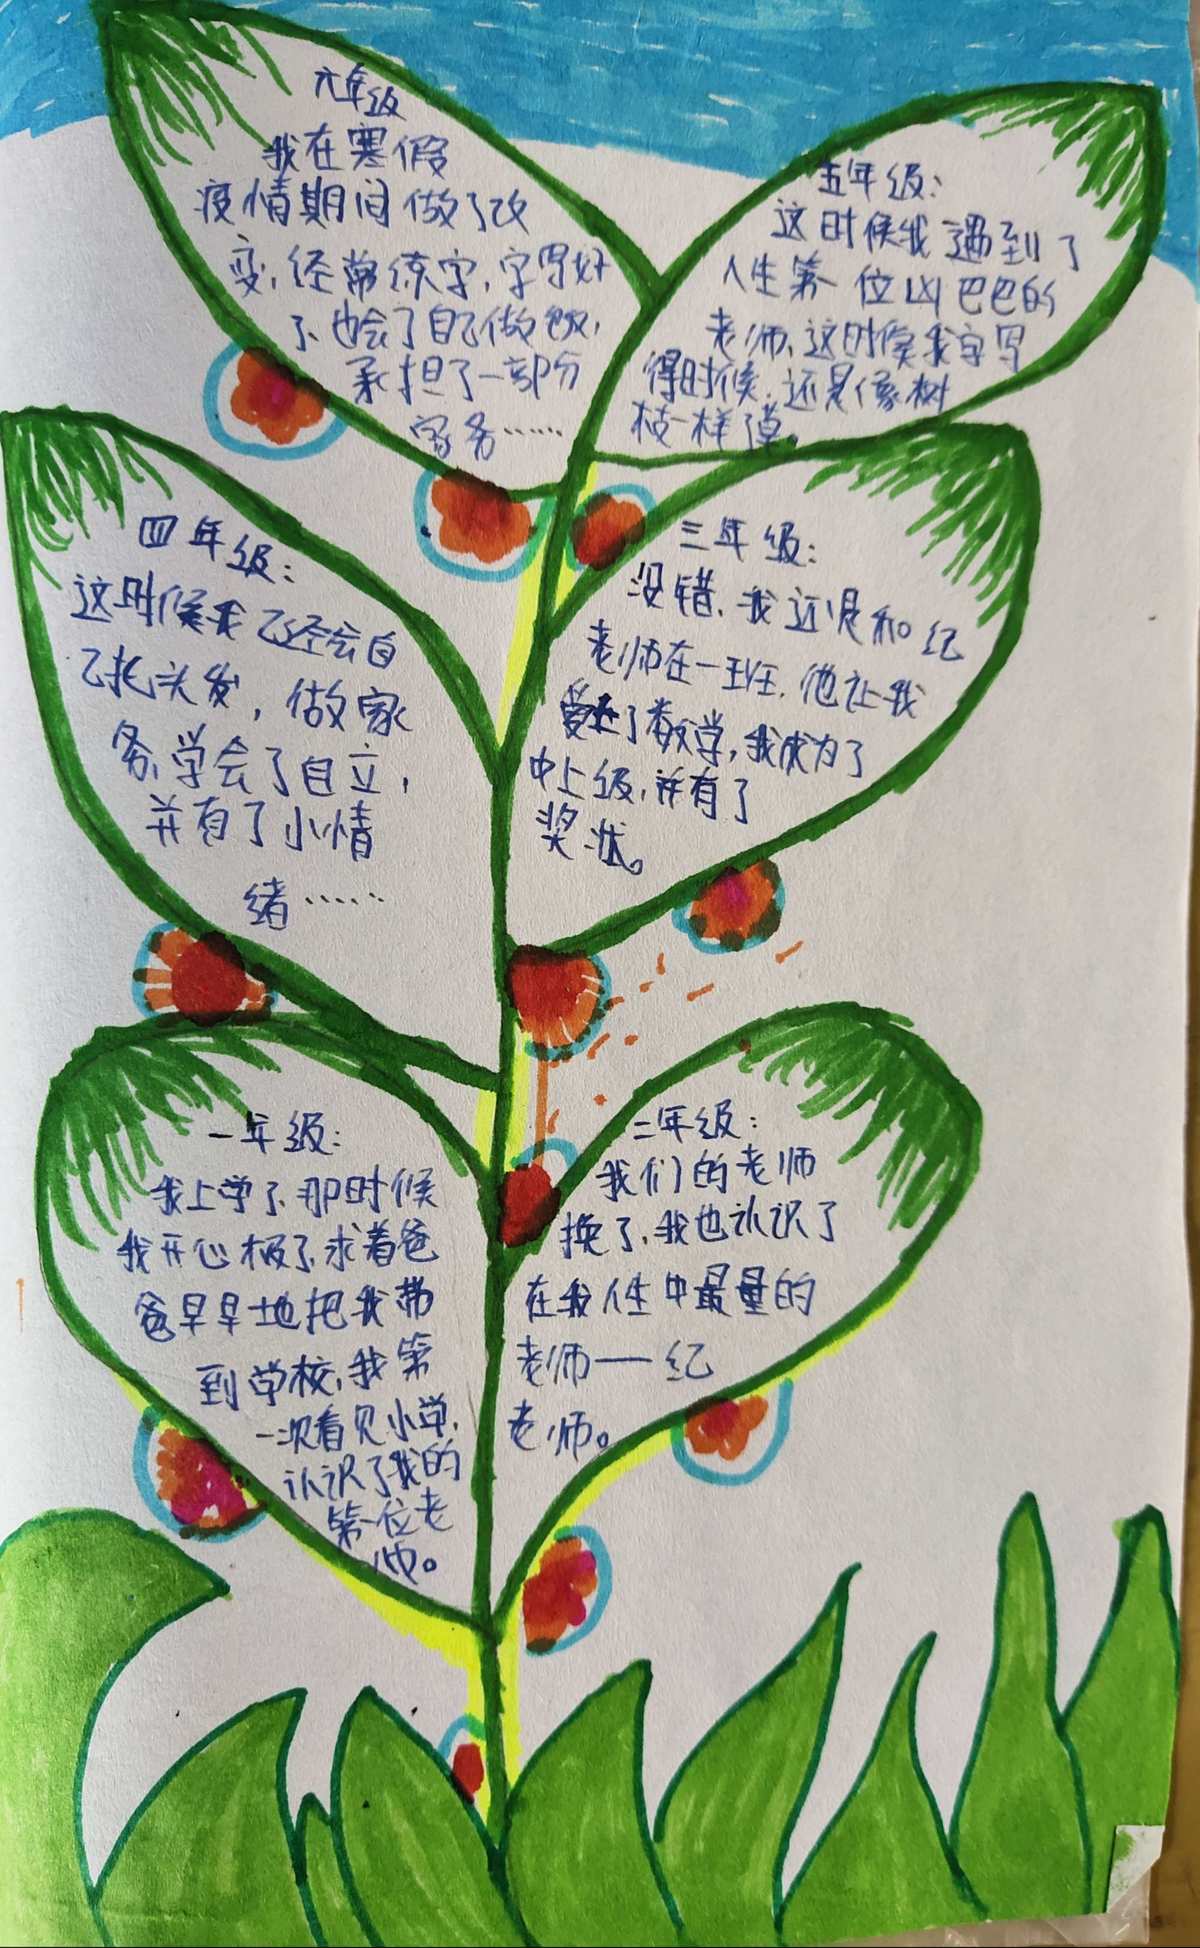 六年级
我在寒假
疫情期间做了改
变，经常练字，字写好
了、也会了自己做饭，
承担了一部分
家务……
五年级：
这时候我遇到了
人生第一位凶巴巴的
老师、这时候我字写
得时候，还是像树
枝一样
四年级：
这时候我已经会自
己扎头发，做家
务，学会了自立，
并有了小情
绪……
三年级：
没错，我还是和纪
老师在一班，他让我
爱上了数学，我成为了
中上级，并有了
奖状。
一年级：
我上学了，那时候
我开心极了，求着爸
爸早早地把我带
到学校，我第
一次看见小学，
认识了我的
第一位老
师。
二年级：
我们的老师
换了，我也认识了
在我人生中最量的
老师——纪
老师。